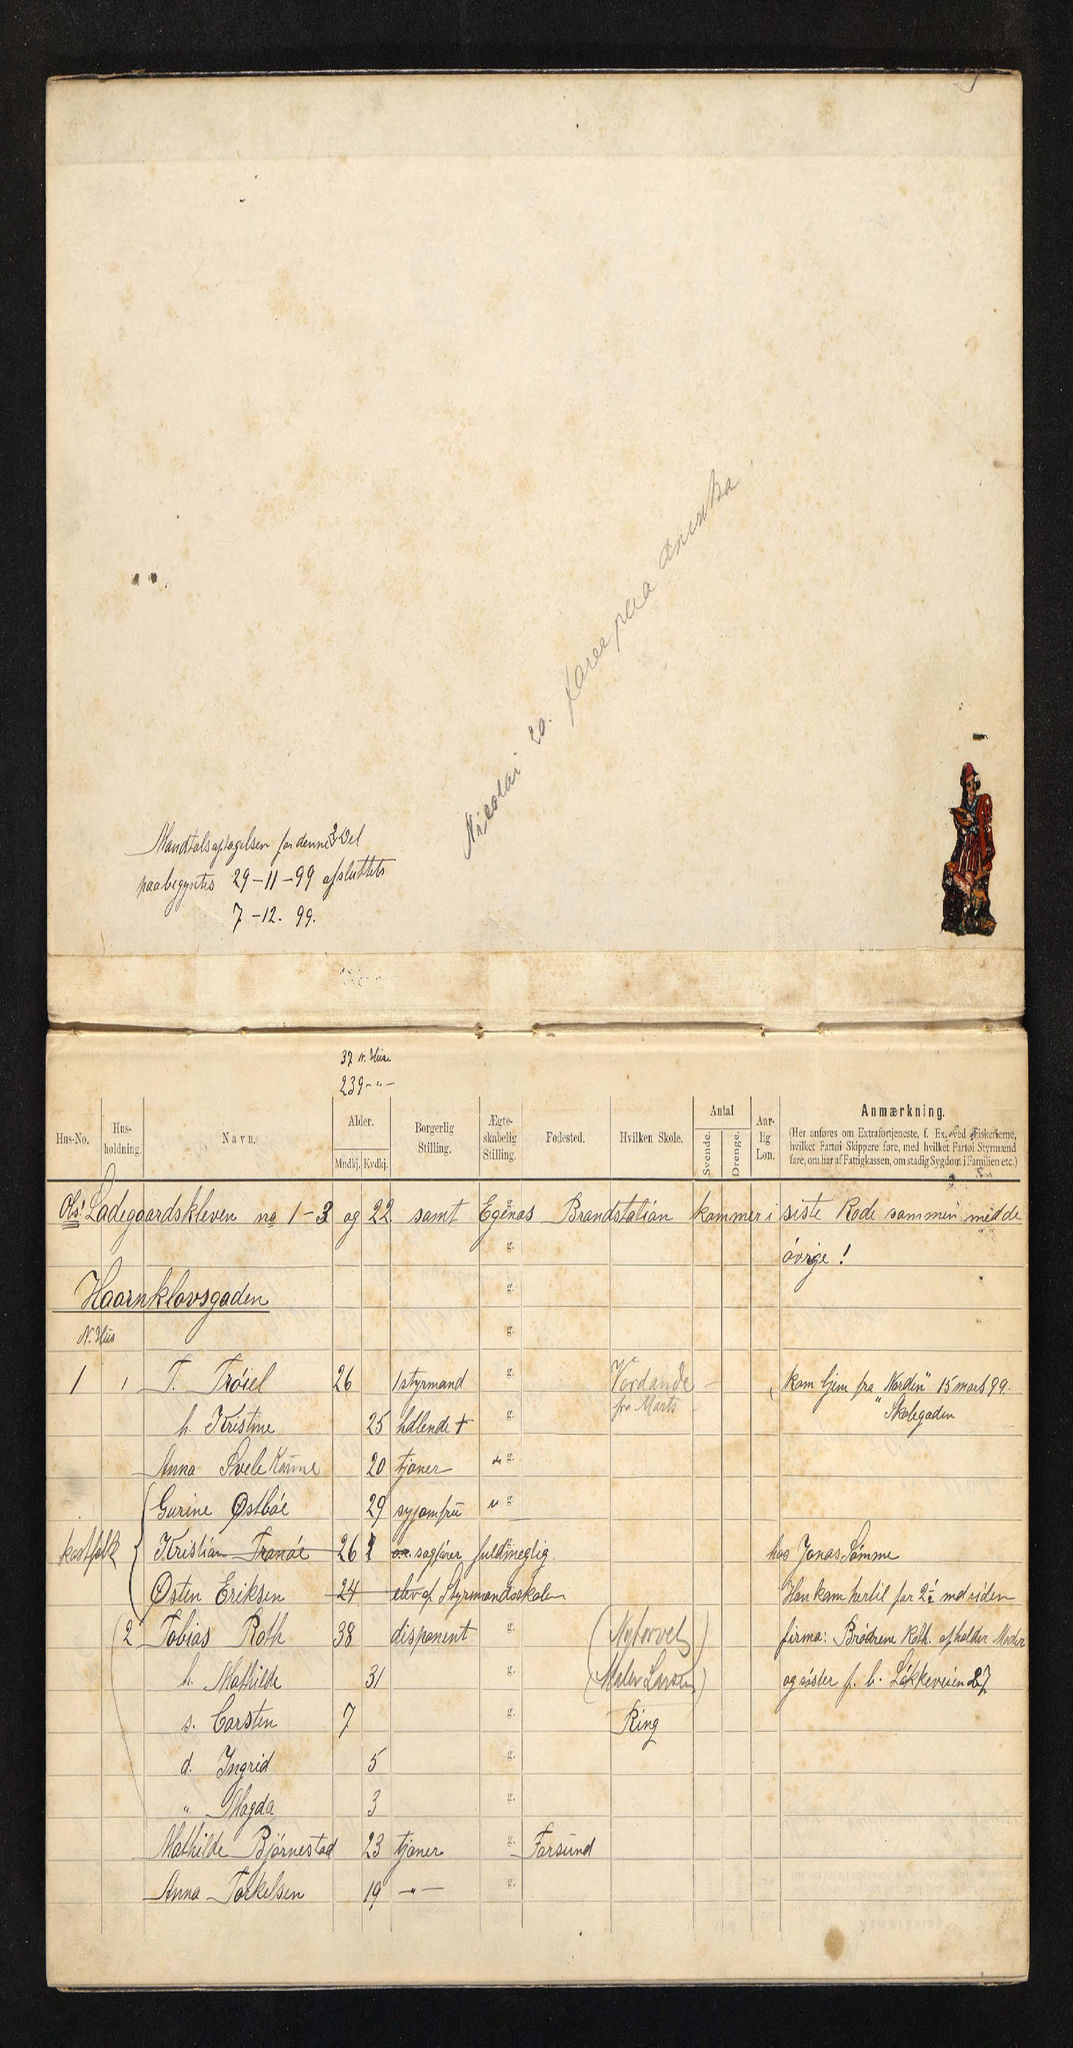 Nicolai 20. farer paa
Mandtalsoptagelsen for denne 2 Del
paabegyntes 29-11-99 afsluttets
7-12. 99.
37 N. Huse
239 - " -
Hus-No. Hus-holdning. Navn. Alder. Mndkj. Kvdkj. Borgerlig Stilling. Ægte-skabelig Stilling. Fødested. Hvilken Skole. Antal Svende. Drenge. Aar-lig Løn. Anmærkning.
(Her anføres om Extrafortjeneste, f. Ex. ved Fiskerierne,
hvilket Fartøi Skippere føre, med hvilket Fartøi Styrmænd
fare, om har af Fattigkassen, om stadig Sygdom i Familien etc.)
Obs! Ladegaardskleven no 1-3 og 22 samt Egenæs Brandstation kommer i siste Rode sammen med de
øvrige!
Haarnkløvsgaden
N. Hus
1 1 T. Trøiel 26 1 styrmand g. Vordande - kom hjem fra "Norden" 15 marts 99.
før Marts
h. Kristine 25 hdlende + g. "Skolegaden
Anna Svele Kaune 20 tjener " g.
Gurine Østbøe 29 syjomfru " g
kostfolk Kristian Tranøe 26 sagfører fuldmegtig. hos Jonas Sømme
Østen Eriksen 24 elev af Styrmandsskolen Han kam hertil for 2½ md siden
2 Tobias Roth 38 disponent g. (Nytorvet) firma: Brødrene Roth. afholder Moder
h. Mathilde 31 g. (Maler Larsen) og søster f. b. Løkkeveien 27
s. Carsten 7 g. Ring
d. Ingrid 5 g.
" Magda 3 g.
Mathilde Bjørnestad 23 tjener g. Farsund
Anna Torkelsen 19 - " - g.